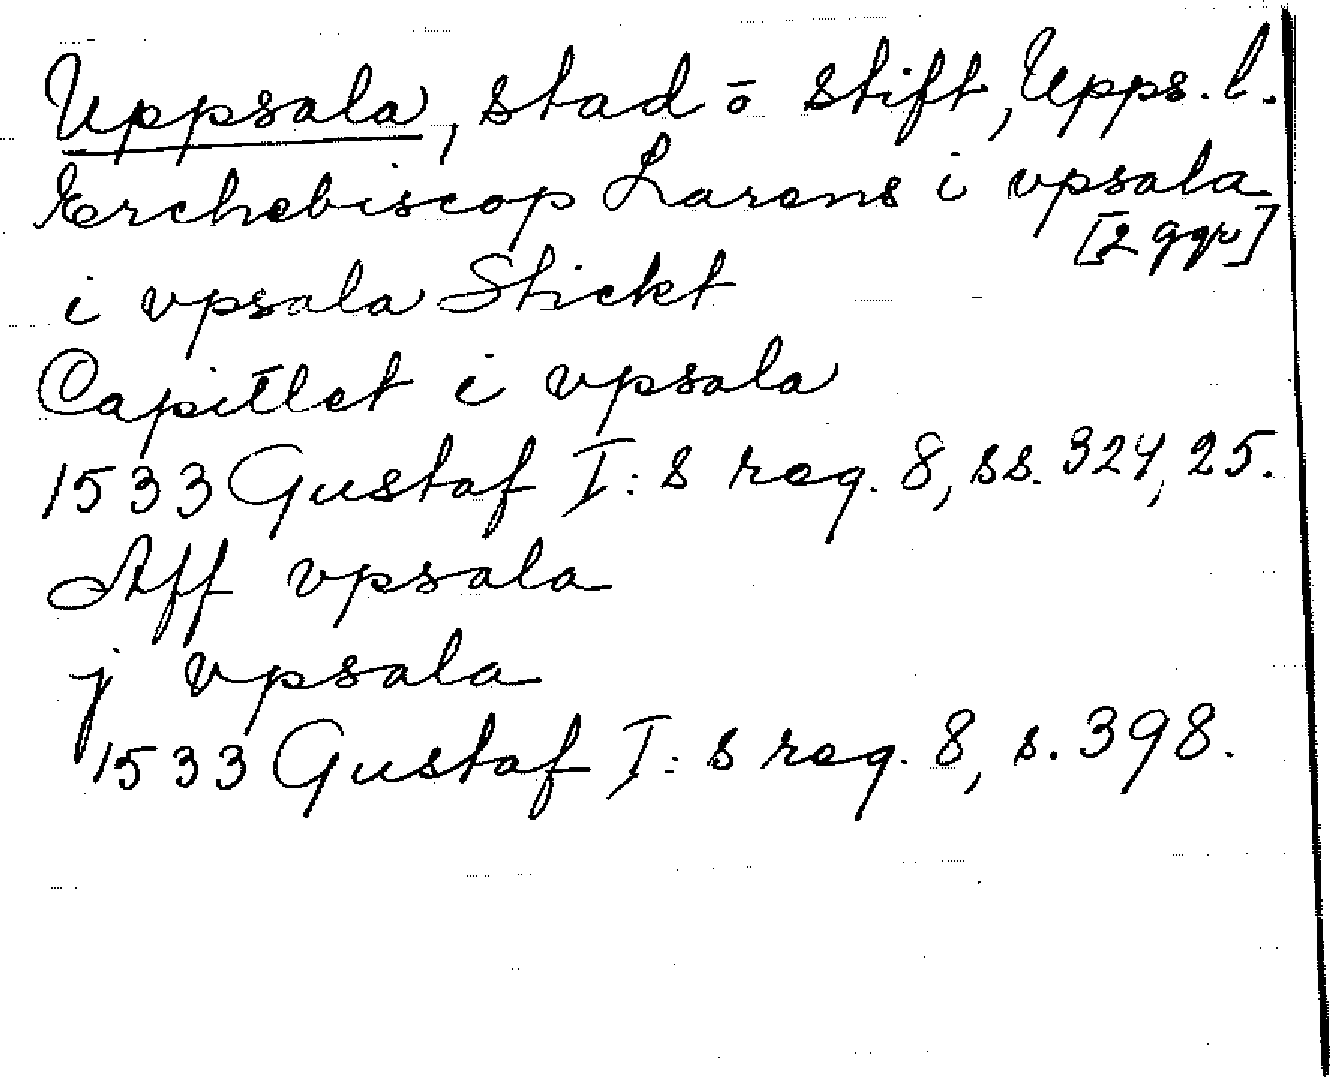 Uppsala, stad o stift, Upps. l.
Erchebiscop Larens i vpsala
[2 ggr]
i vpsala Stickt
Capitlet i vpsala
1533 Gustaf I:s reg. 8, ss. 324, 25.
Aff vpsala
j vpsala
1533 Gustaf I:s reg. 8, s. 398.